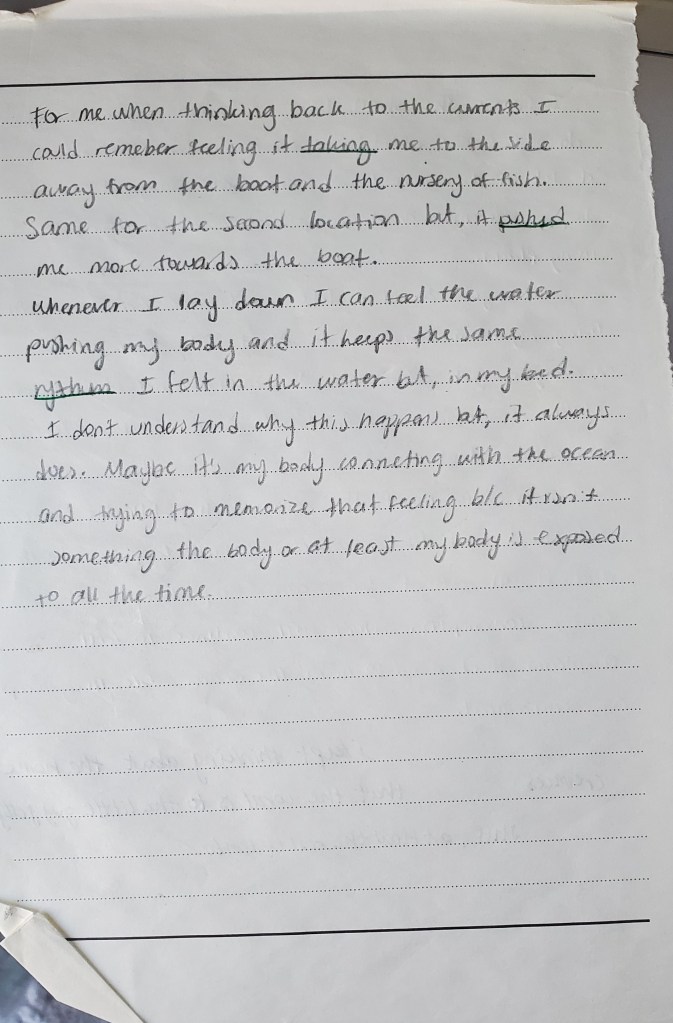 For me when thinking back to the currents I
could remeber feeling it taking me to the side
away from the boat and the nursery of fish.
Same for the second location but, it pushed
me more towards the boat.
whenever I lay down I can feel the water
pushing my body and it keeps the same
rythum I felt in the water but, in my bed.
I don't understand why this happens but, it always
does. Maybe it's my body conneting with the ocean
and trying to memorize that feeling b/c it isn't
something the body or at least my body is exposed
to all the time.